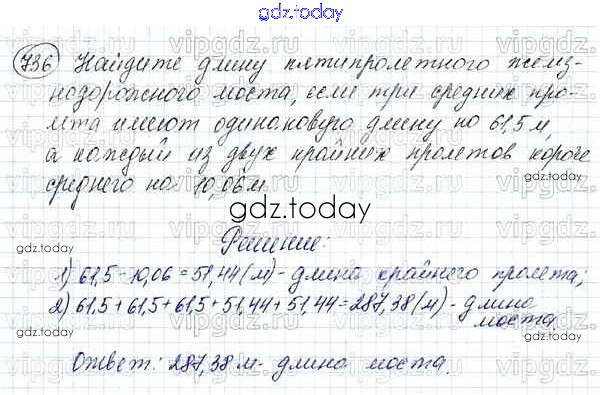 gdz.today
736 Найдите длину пятипролетного желез-
нодорожного моста, если три средних про-
лета имеют одинаковую длину по 61,5 м,
а каждый из двух крайних пролетов короче
среднего на 10,06 м.
gdz.today
Решение:
1) 61,5-10,06=51,44(м)- длина крайнего пролета;
2) 61,5+61,5+61,5+51,44+51,44=287,38(м)- длина
моста.
Ответ: 287,38 м- длина моста.